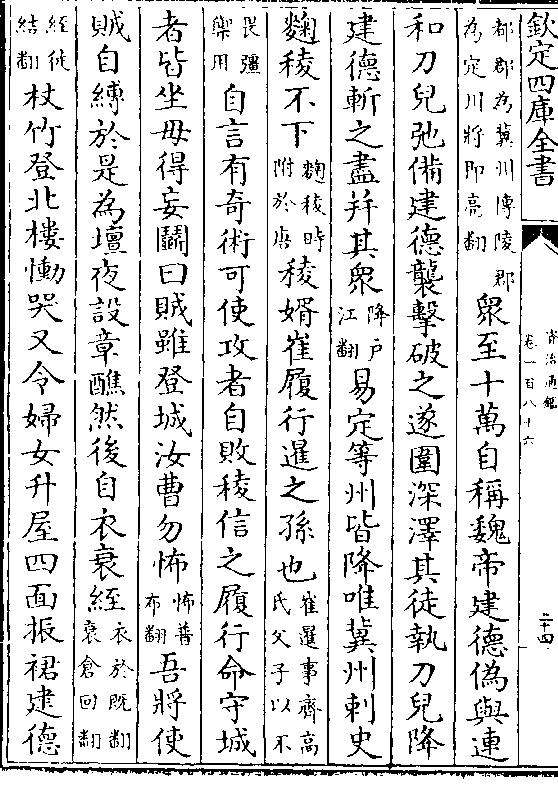 欽定四庫全書
資治通鑑
卷一百八十六
二十四
都郡為冀州博陵郡
為定州將即亮翻
衆至十萬自稱魏帝建德偽與連
和刀兒弛備建德襲擊破之遂圍深澤其徒執刀兒降
建德斬之盡并其衆
降户
江翻
易定等州皆降唯冀州刺史
麴稜不下
麴稜時
附於唐
稜婿崔履行暹之孫也
崔暹事齊高
氏父子以不
畏彊
禦用
自言有奇術可使攻者自敗稜信之履行命守城
者皆坐毋得妄鬭曰賊雖登城汝曹勿怖
怖普
布翻
吾將使
賊自縛於是為壇夜設章醮然後自衣衰絰
衣於既翻
衰倉回翻
絰徒
結翻
杖竹登北樓慟哭又令婦女升屋四面振裙建德